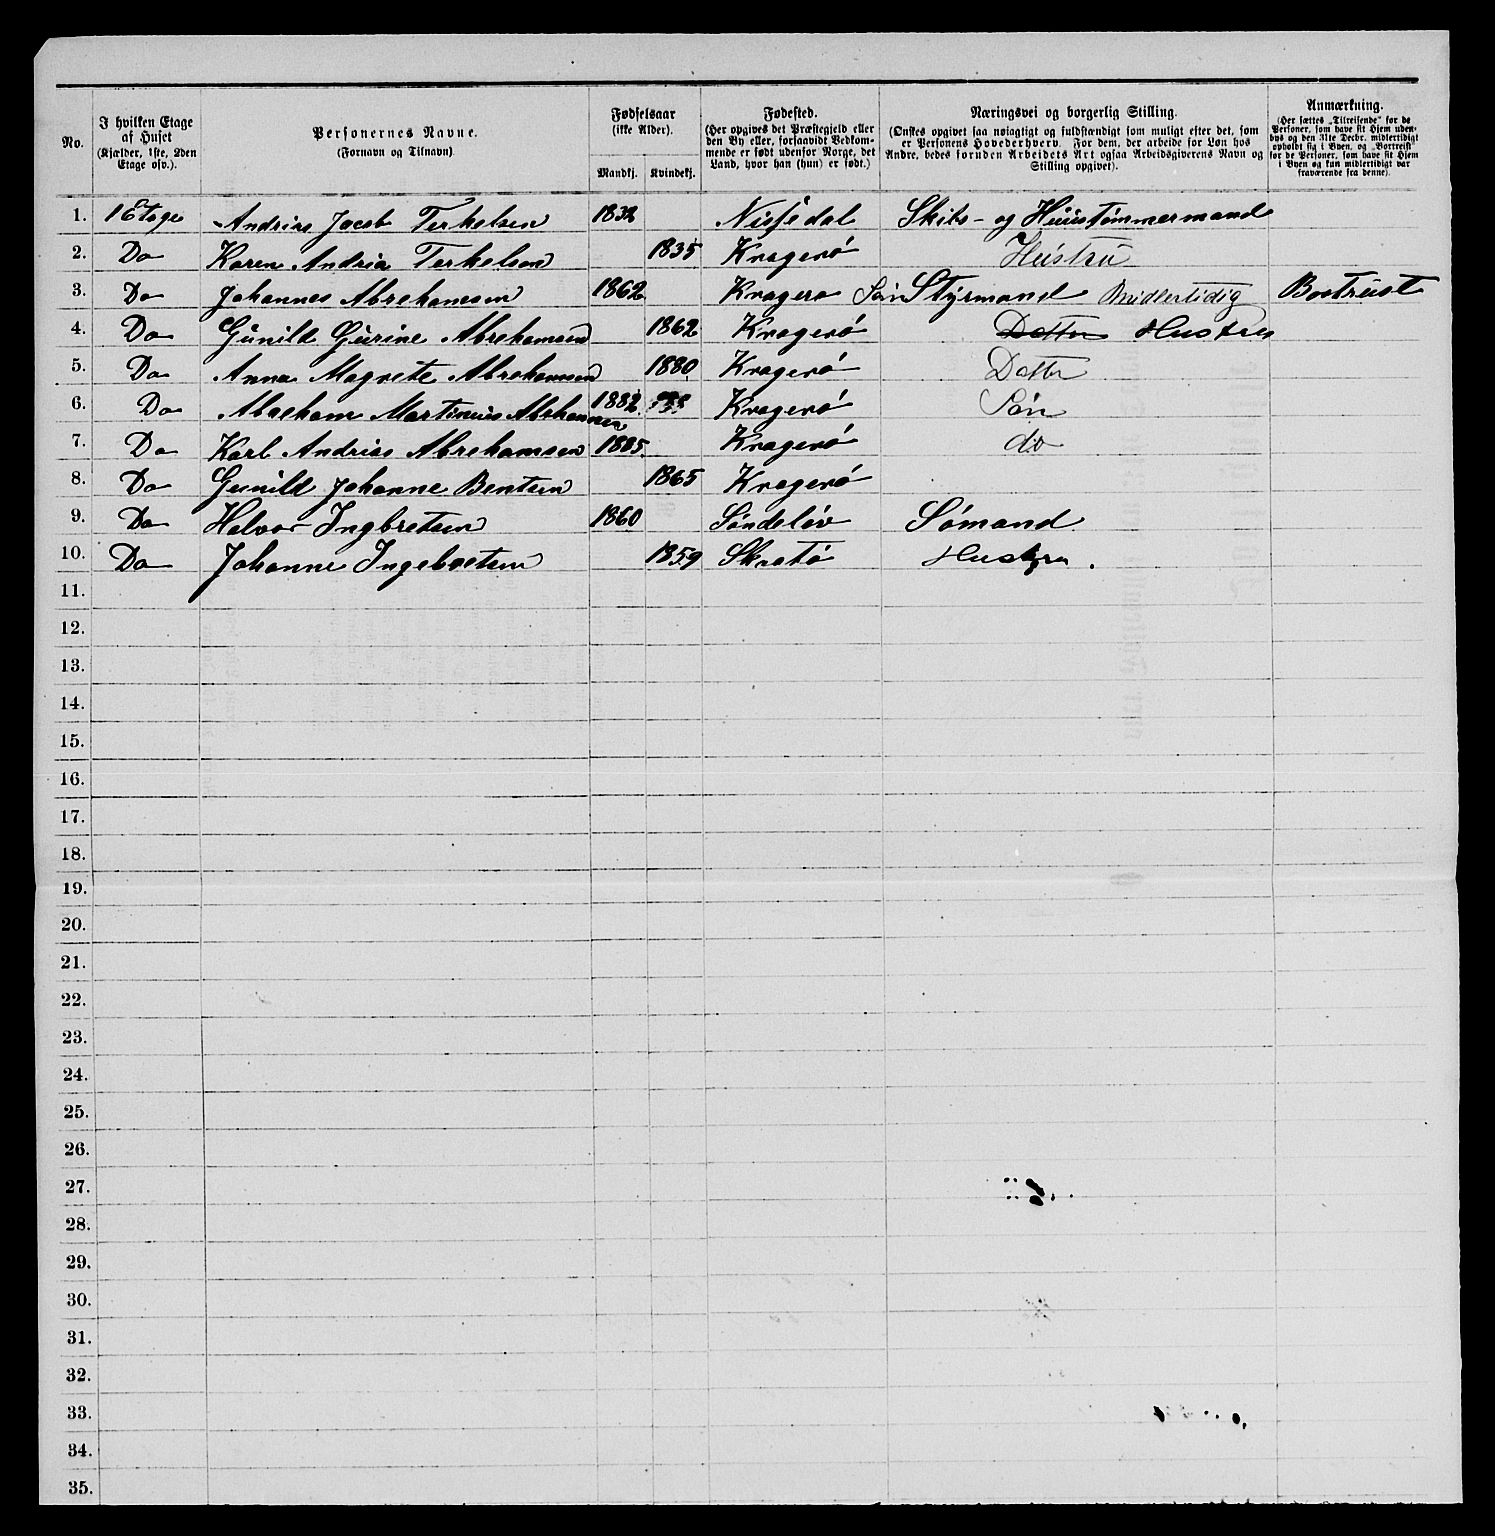 No.
I hvilken Etage af Huset (Kjælder, 1ste, 2den Etage osv.).
Personernes Navne. (Fornavn og Tilnavn)
Fødselsaar (ikke Alder).
Mandkj. Kvindekj.
Fødested. (Her opgives det Præstegjeld eller den By eller, forsaavidt Vedkommende er født udenfor Norge, det Land, hvor han (hun) er født.)
Næringsvei og borgerlig Stilling. (Ønskes opgivet saa nøiagtigt og fuldstændigt som muligt efter det, som er Personens Hovederhverv. For dem, der arbeide for Løn hos Andre, bedes foruden Arbeidets Art ogsaa Arbeidsgiverens Navn og Stilling opgivet).
Anmærkning. (Her sættes „Tilreisende" for de Personer, som have sit Hjem udenbys og den 31te Decbr. midlertidigt opholdt sig i Byen, og „Bortreist" for de Personer, som have sit Hjem i Byen og kun midlertidigt var fraværende fra denne).
1. 1 Etage Andrias Jacob Terkelsen 1832 Nissedal Skibs- og Huustømmermand
2. Do Karen Andria Terkelsen 1835 Kragerø Hustru
3. Do Johannes Abrehamsen 1862 Kragerø Søn Styrmand Midlertidig Bortreist
4. Do Gunild Gurine Abrehamsen 1862 Kragerø Datter Hustru
5. Do Anna Magrete Abrehamsen 1880 Kragerø Datter
6. Do Abreham Martinius Abrehamsen 1882 Kragerø Søn
7. Do Karl Andrias Abrehamsen 1885 Kragerø do
8. Do Gunild Johanne Bentsen 1865 Kragerø
9. Do Halvor Ingbretsen 1860 Søndeløv Sømand
10. Do Johanne Ingebretsen 1859 Skratø Hustru.
11.
12.
13.
14.
15.
16.
17.
18.
19.
20.
21.
22.
23.
24.
25.
26.
27.
28.
29.
30.
31.
32.
33.
34.
35.